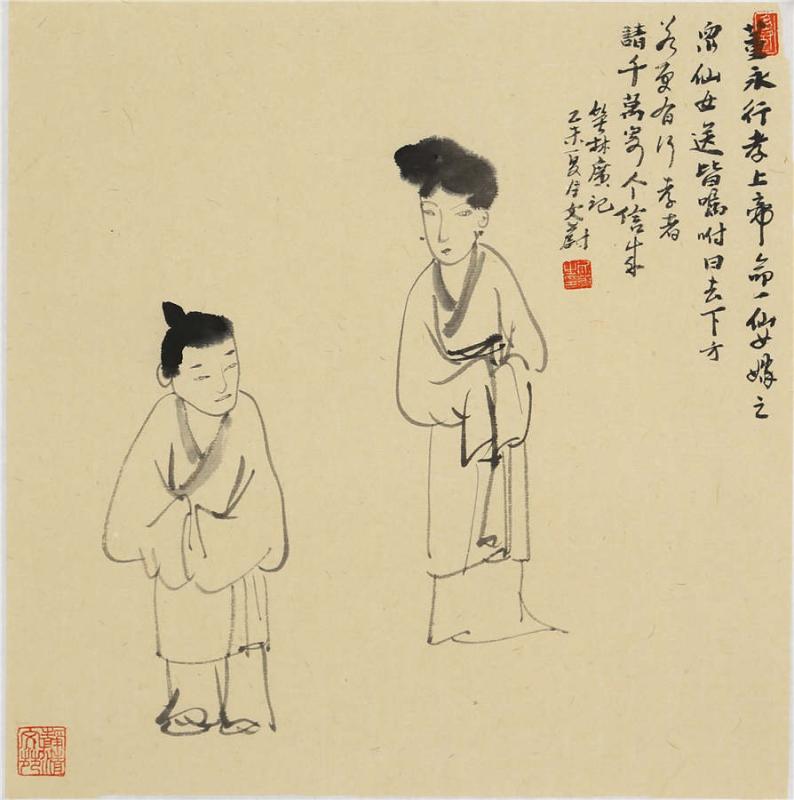 董永行孝上帝命一仙女嫁之
眾仙女送皆囑咐曰去下方
若更有行孝者
請千萬寄个信来
笑林廣記
乙未夏 文蔚